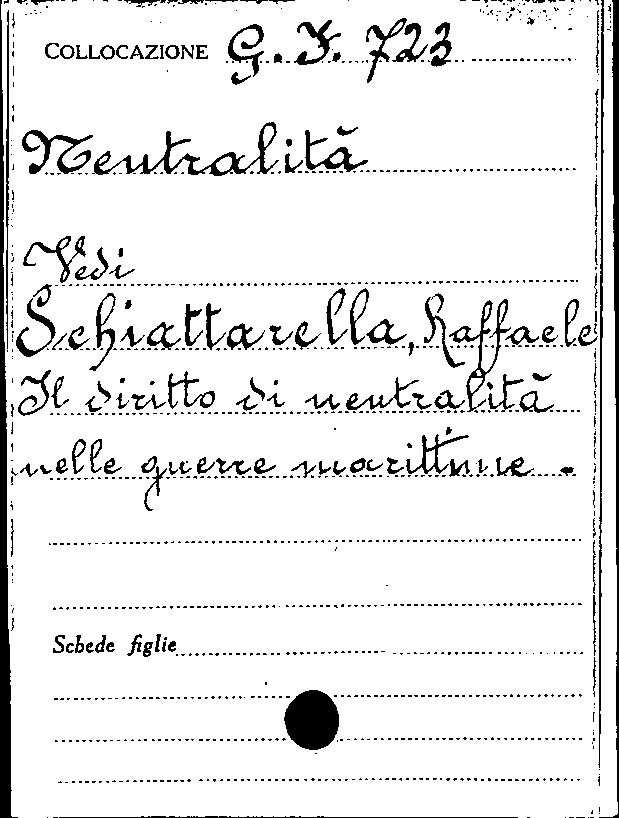 COLLOCAZIONE G. F. 723
Neutralità
Vedi
Schiattarella, Raffaele
Il diritto di neutralità
nelle guerre marittime.
Schede figlie